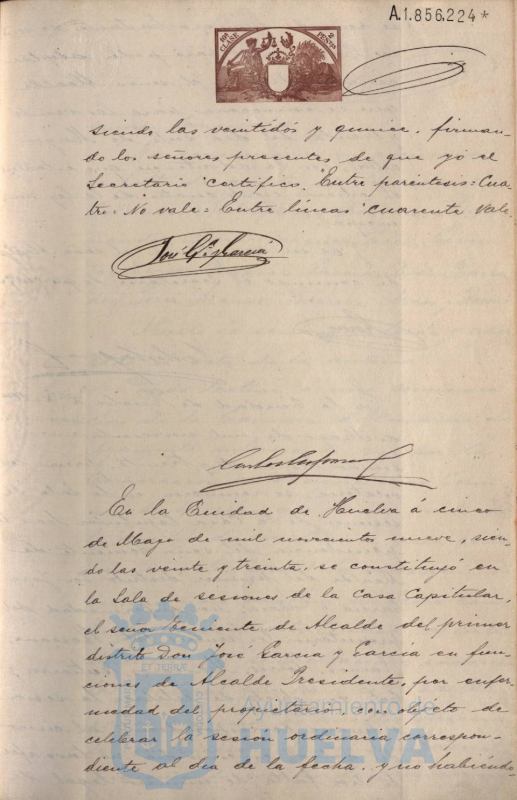 A.1.856.224*
10ª CLASE
2 PESETAS
siendo las veintidós y quince, firman-
do los señores presentes de que yo el
Secretario certifico. Entre paréntesis = Cua-
tro. No vale = Entre líneas cuarenta Vale
José Gª y García
En la Ciudad de Huelva á cinco
de Mayo de mil novecientos nueve, sien-
do las veinte y treinta, se constituyó en
la Sala de sesiones de la Casa Capitular,
el señor Teniente de Alcalde del primer
distrito Don José Garcia y Garcia en fun-
ciones de Alcalde Presidente, por enfer-
medad del propietario, con objeto de
celebrar la sesión ordinaria correspon-
diente al día de la fecha, y no habiéndo-
Ayuntamiento de
HUELVA